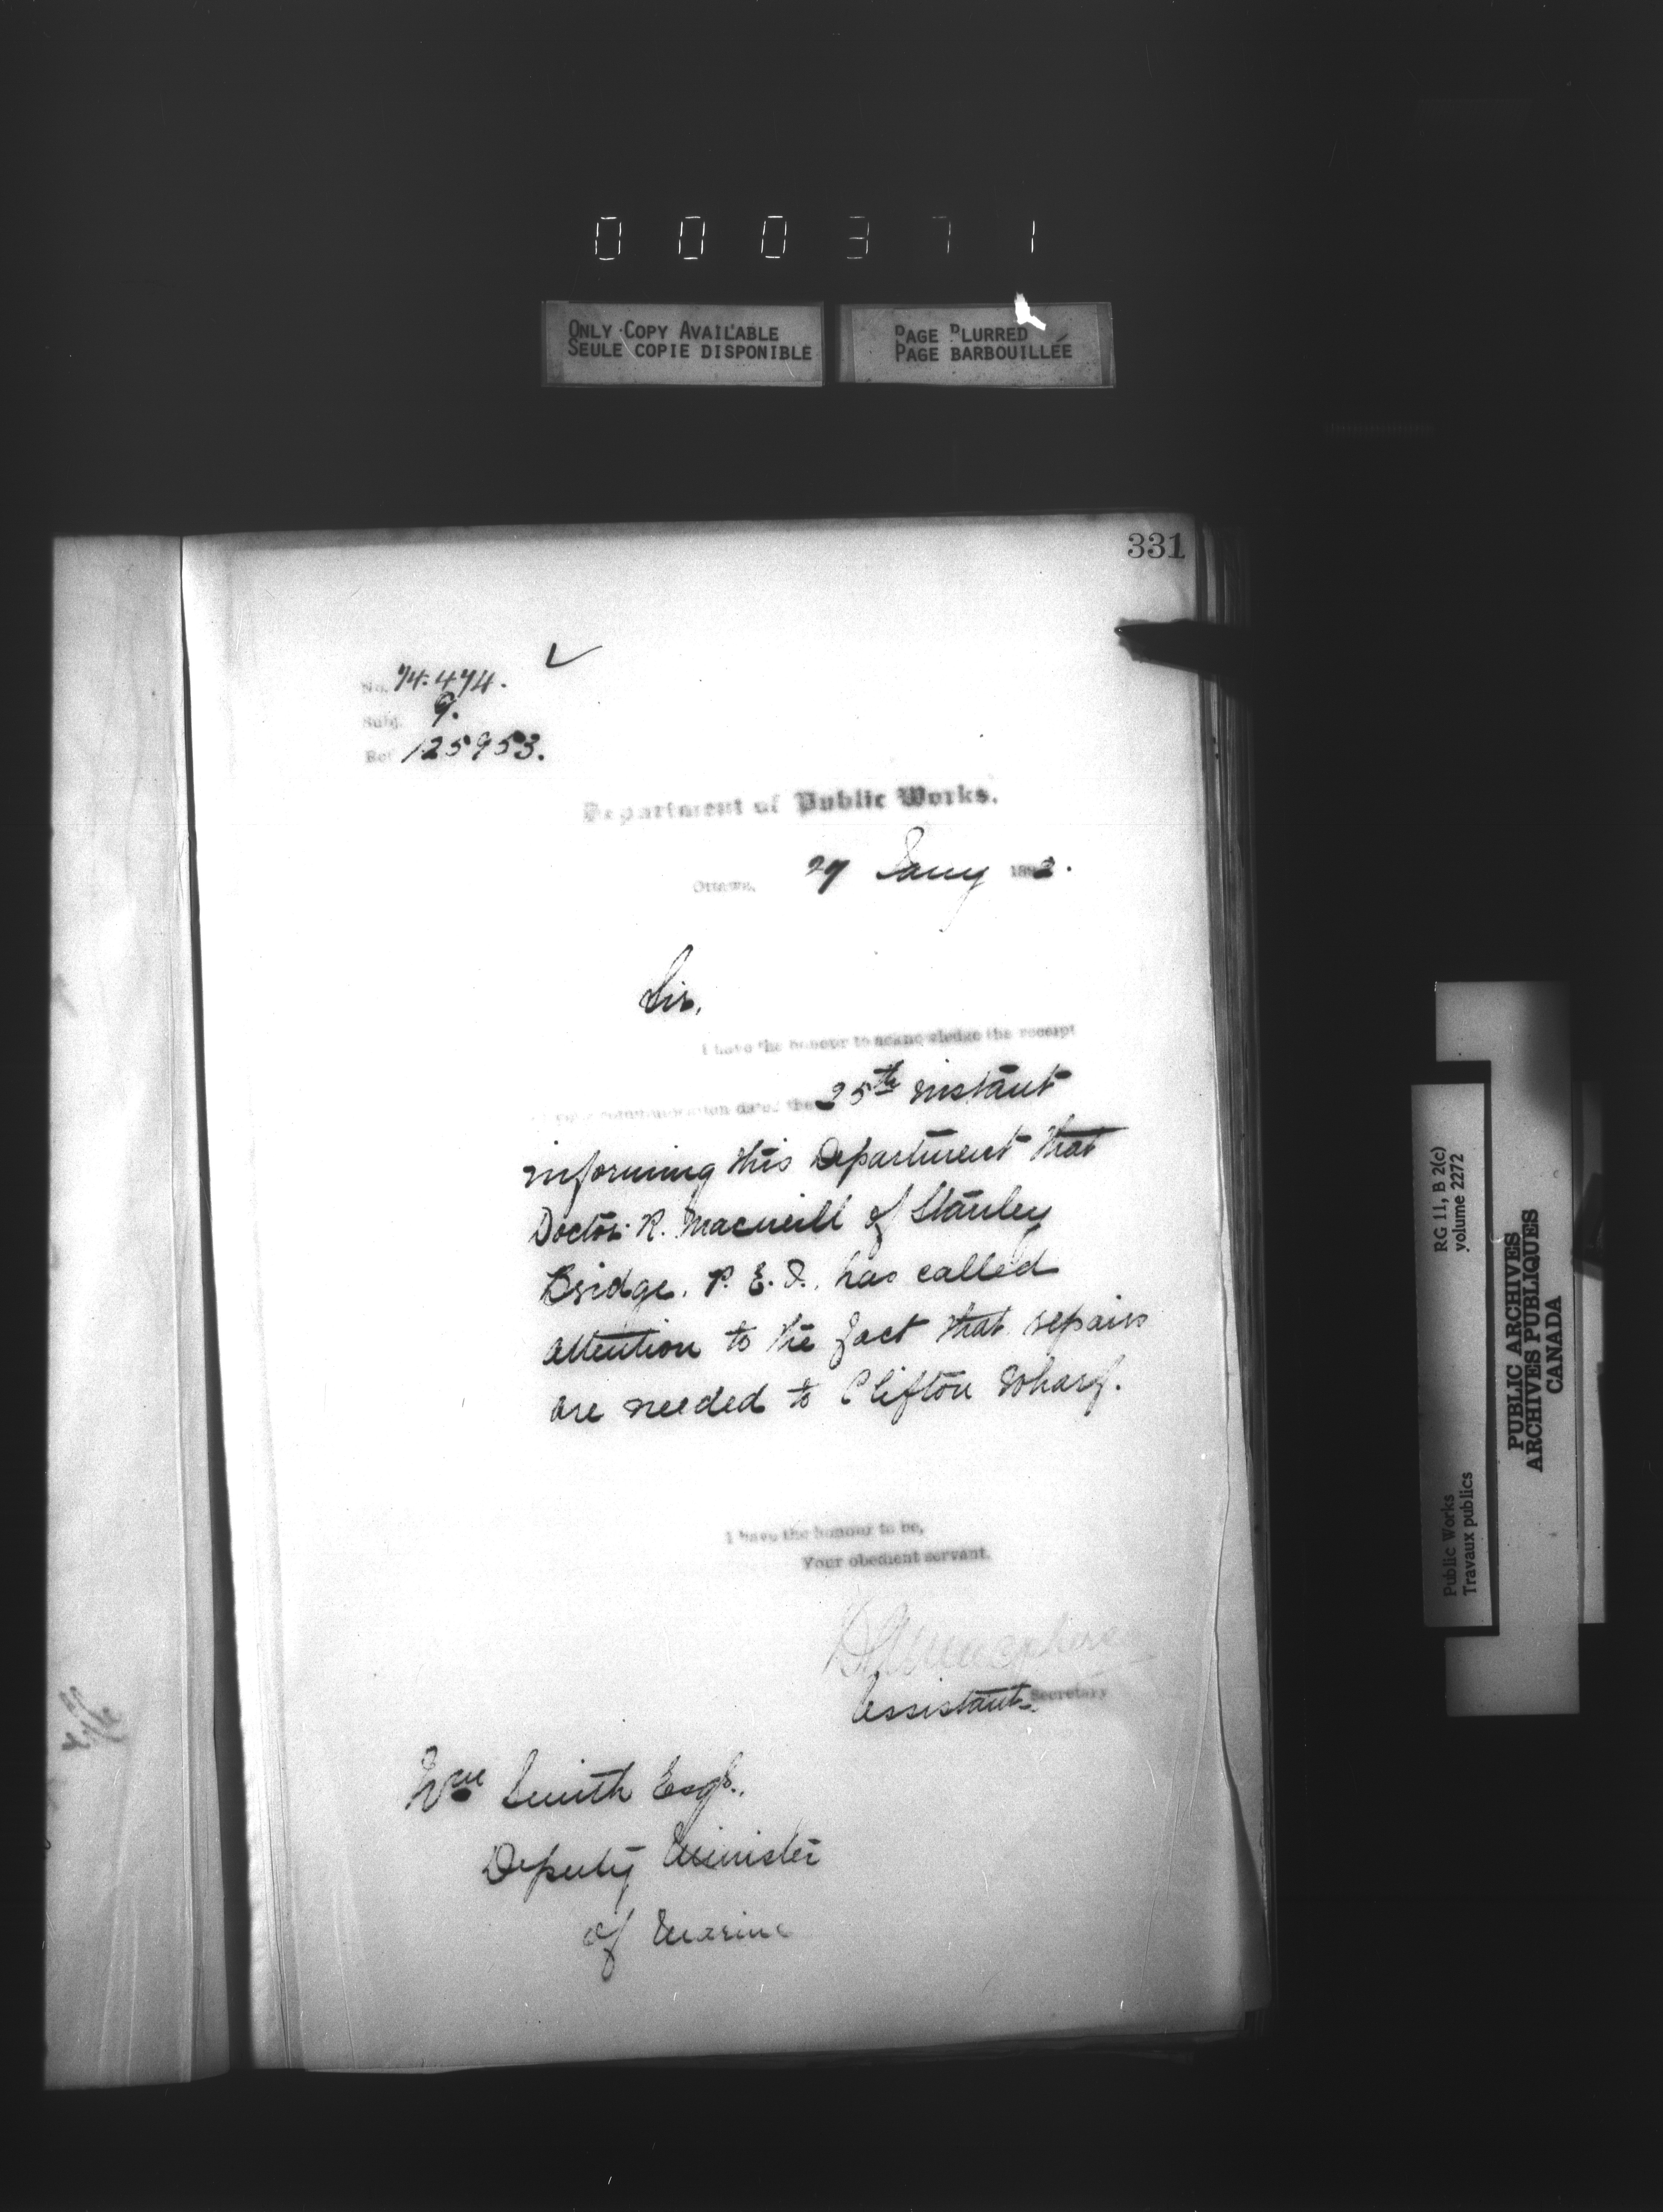 000371
ONLY COPY AVAILABLE
SEULE COPIE DISPONIBLE
PAGE BLURRED
PAGE BARBOUILLÉE
331
No. 74.474.
Subj. 9.
Ref 125953.
Department of Public Works.
Ottawa, 27 Jany 1892.
Sir,
I have the honour to acknowledge the receipt
of your communication dated the 25th instant
informing this Department that
Doctor R. Macneill of Stanley
Bridge. P. E. I., has called
attention to the fact that repairs
are needed to Clifton Wharf.
I have the honour to be,
Your obedient servant.
Assistant Secretary
Wm Smith Esqr.,
Deputy Minister
of Marine
RG 11, B 2(c)
volume 2272
Public Works
Travaux publics
PUBLIC ARCHIVES
ARCHIVES PUBLIQUES
CANADA